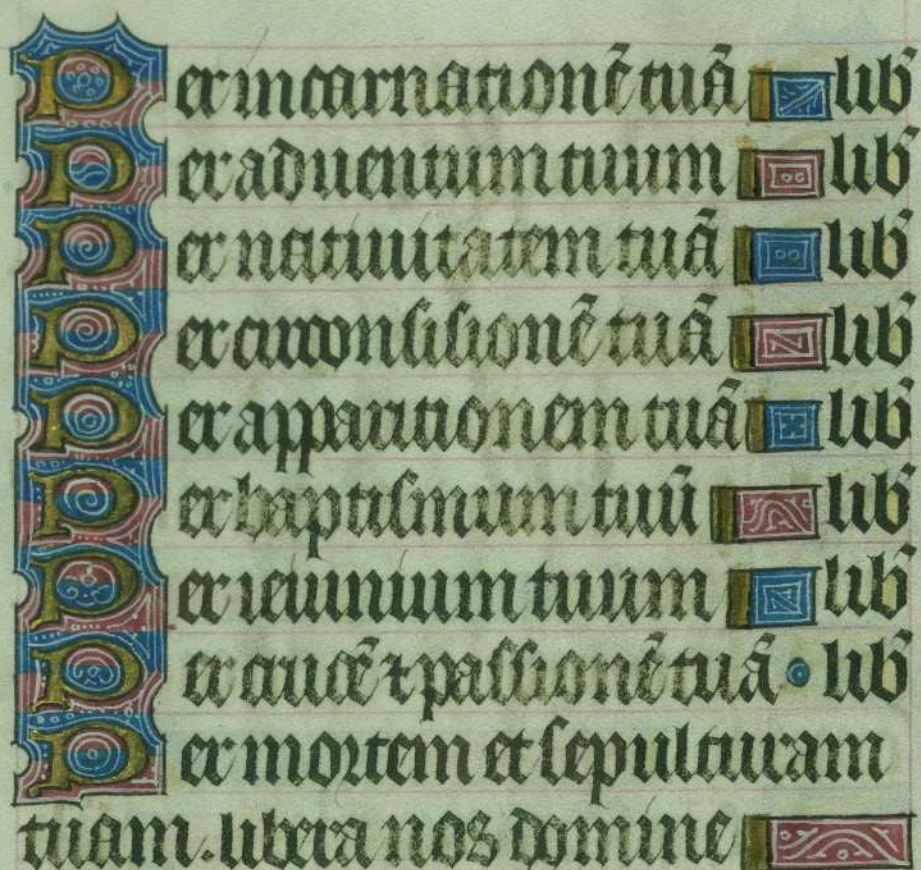 Per incarnationē tuā lib̄
Per aduentum tuum lib̄
Per natiuitatem tuā lib̄
Per circonsisionē tuā lib̄
Per apparitionem tuā lib̄
Per baptismum tuū lib̄
Per ieiunium tuum lib̄
Per crucē ⁊ passionē tuā • lib̄
Per mortem et sepulturam
tuam. libera nos domine